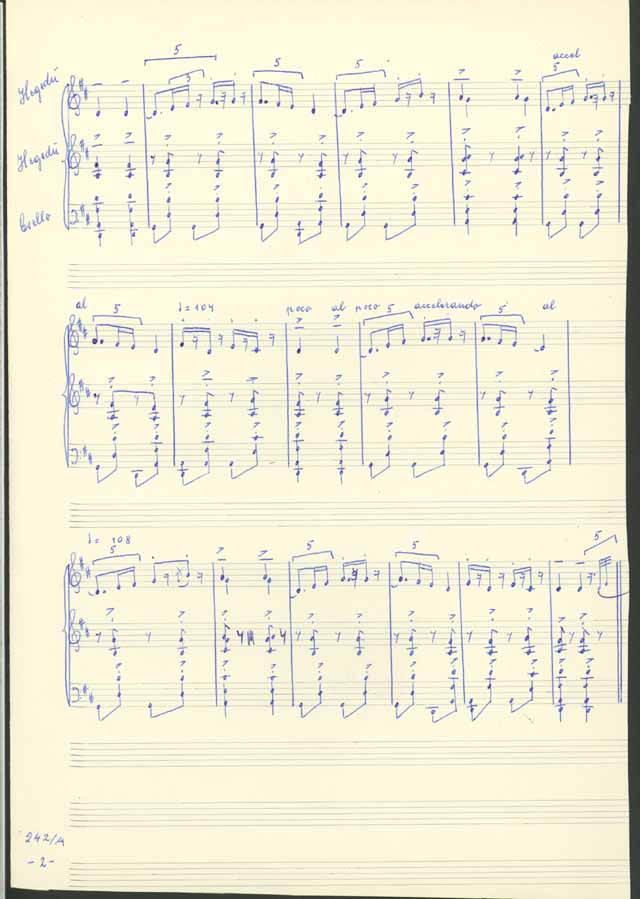 5
5
5
5
accel
5
Hegedű
Hegedű
Csello
al
5
♩=104
poco al poco accelerando al
5
5
♩= 108
5
5
5
5
242/A
-2-